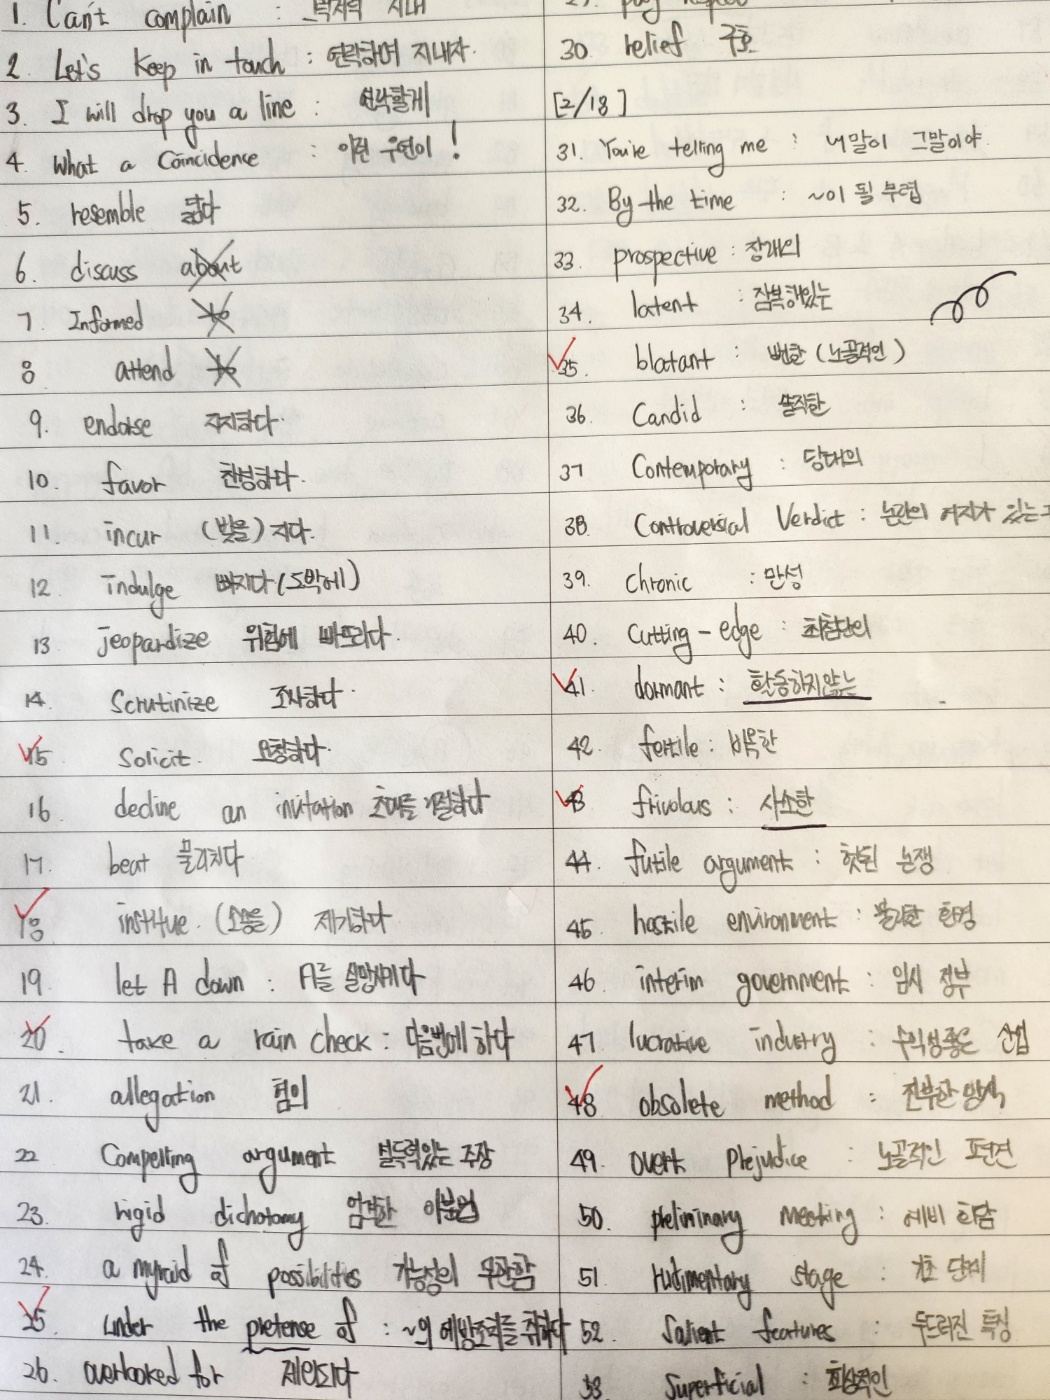 1. Can't complain : 지내
2. Let's keep in touch : 연락하며 지내자.
3. I will drop you a line : 연락할게
4. What a Coincidence : 이런 우연이!
5. resemble 닮다
6. discuss about
7. Informed to
8 attend to
9. endorse 지지하다.
10. favor 찬성하다.
11. incur (빚을) 지다.
12 indulge 빠지다 (도박에)
13 jeopardize 위험에 빠뜨리다.
14. Scrutinize 조사하다.
15 Solicit. 요청하다.
16. decline an invitation 초대를 거절하다
17. beat 물리치다
18 institue. (소송을) 제기하다
19. let A down : A를 실망시키다
20. take a rain check : 다음번에 하다
21. allegation 혐의
22 Compelling argument 설득력있는 주장
23. rigid dichotomy 엄격한 이분법
24. a myraid of possibilities 가능성의 무관함
25. under the pretense of : ~의 예방조치를 취하다
26. overlooked for 제외되다
30 relief 구호
[2/18]
31. You're telling me : 내말이 그말이야.
32. By the time : ~이 될 무렵
33. prospective : 장래의
34. latent : 잠복해있는
35. blatant : 뻔한 (노골적인)
36. Candid : 솔직한
37 Contemporary : 당대의
38. Controversial Verdict : 논란의 여지가 있는
39. Chronic : 만성
40. Cutting-edge : 최첨단의
41. dormant : 활동하지않는
42. fertile : 비옥한
43 frivolous : 사소한
44. futile argument : 헛된 논쟁
45 hostile environment : 불리한 환경
46 interim government : 임시 정부
47. lucrative industry : 수익성좋은 산업
48 obsolete method : 진부한 방식
49. overt prejudice : 노골적인 편견
50. preliminary meeting : 예비 회담
51 rudimentary stage : 기초 단계
52. Salient features : 두드러진 특징
53 Superficial : 피상적인